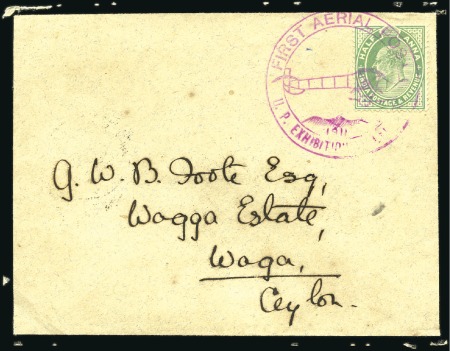 FIRST AERIAL
HALF ANNA
INDIA POSTAGE & REVENUE
1911
U. P. EXHIBITION
G. W. B. Foote Esq,
Wagga Estate,
Waga,
Ceylon.